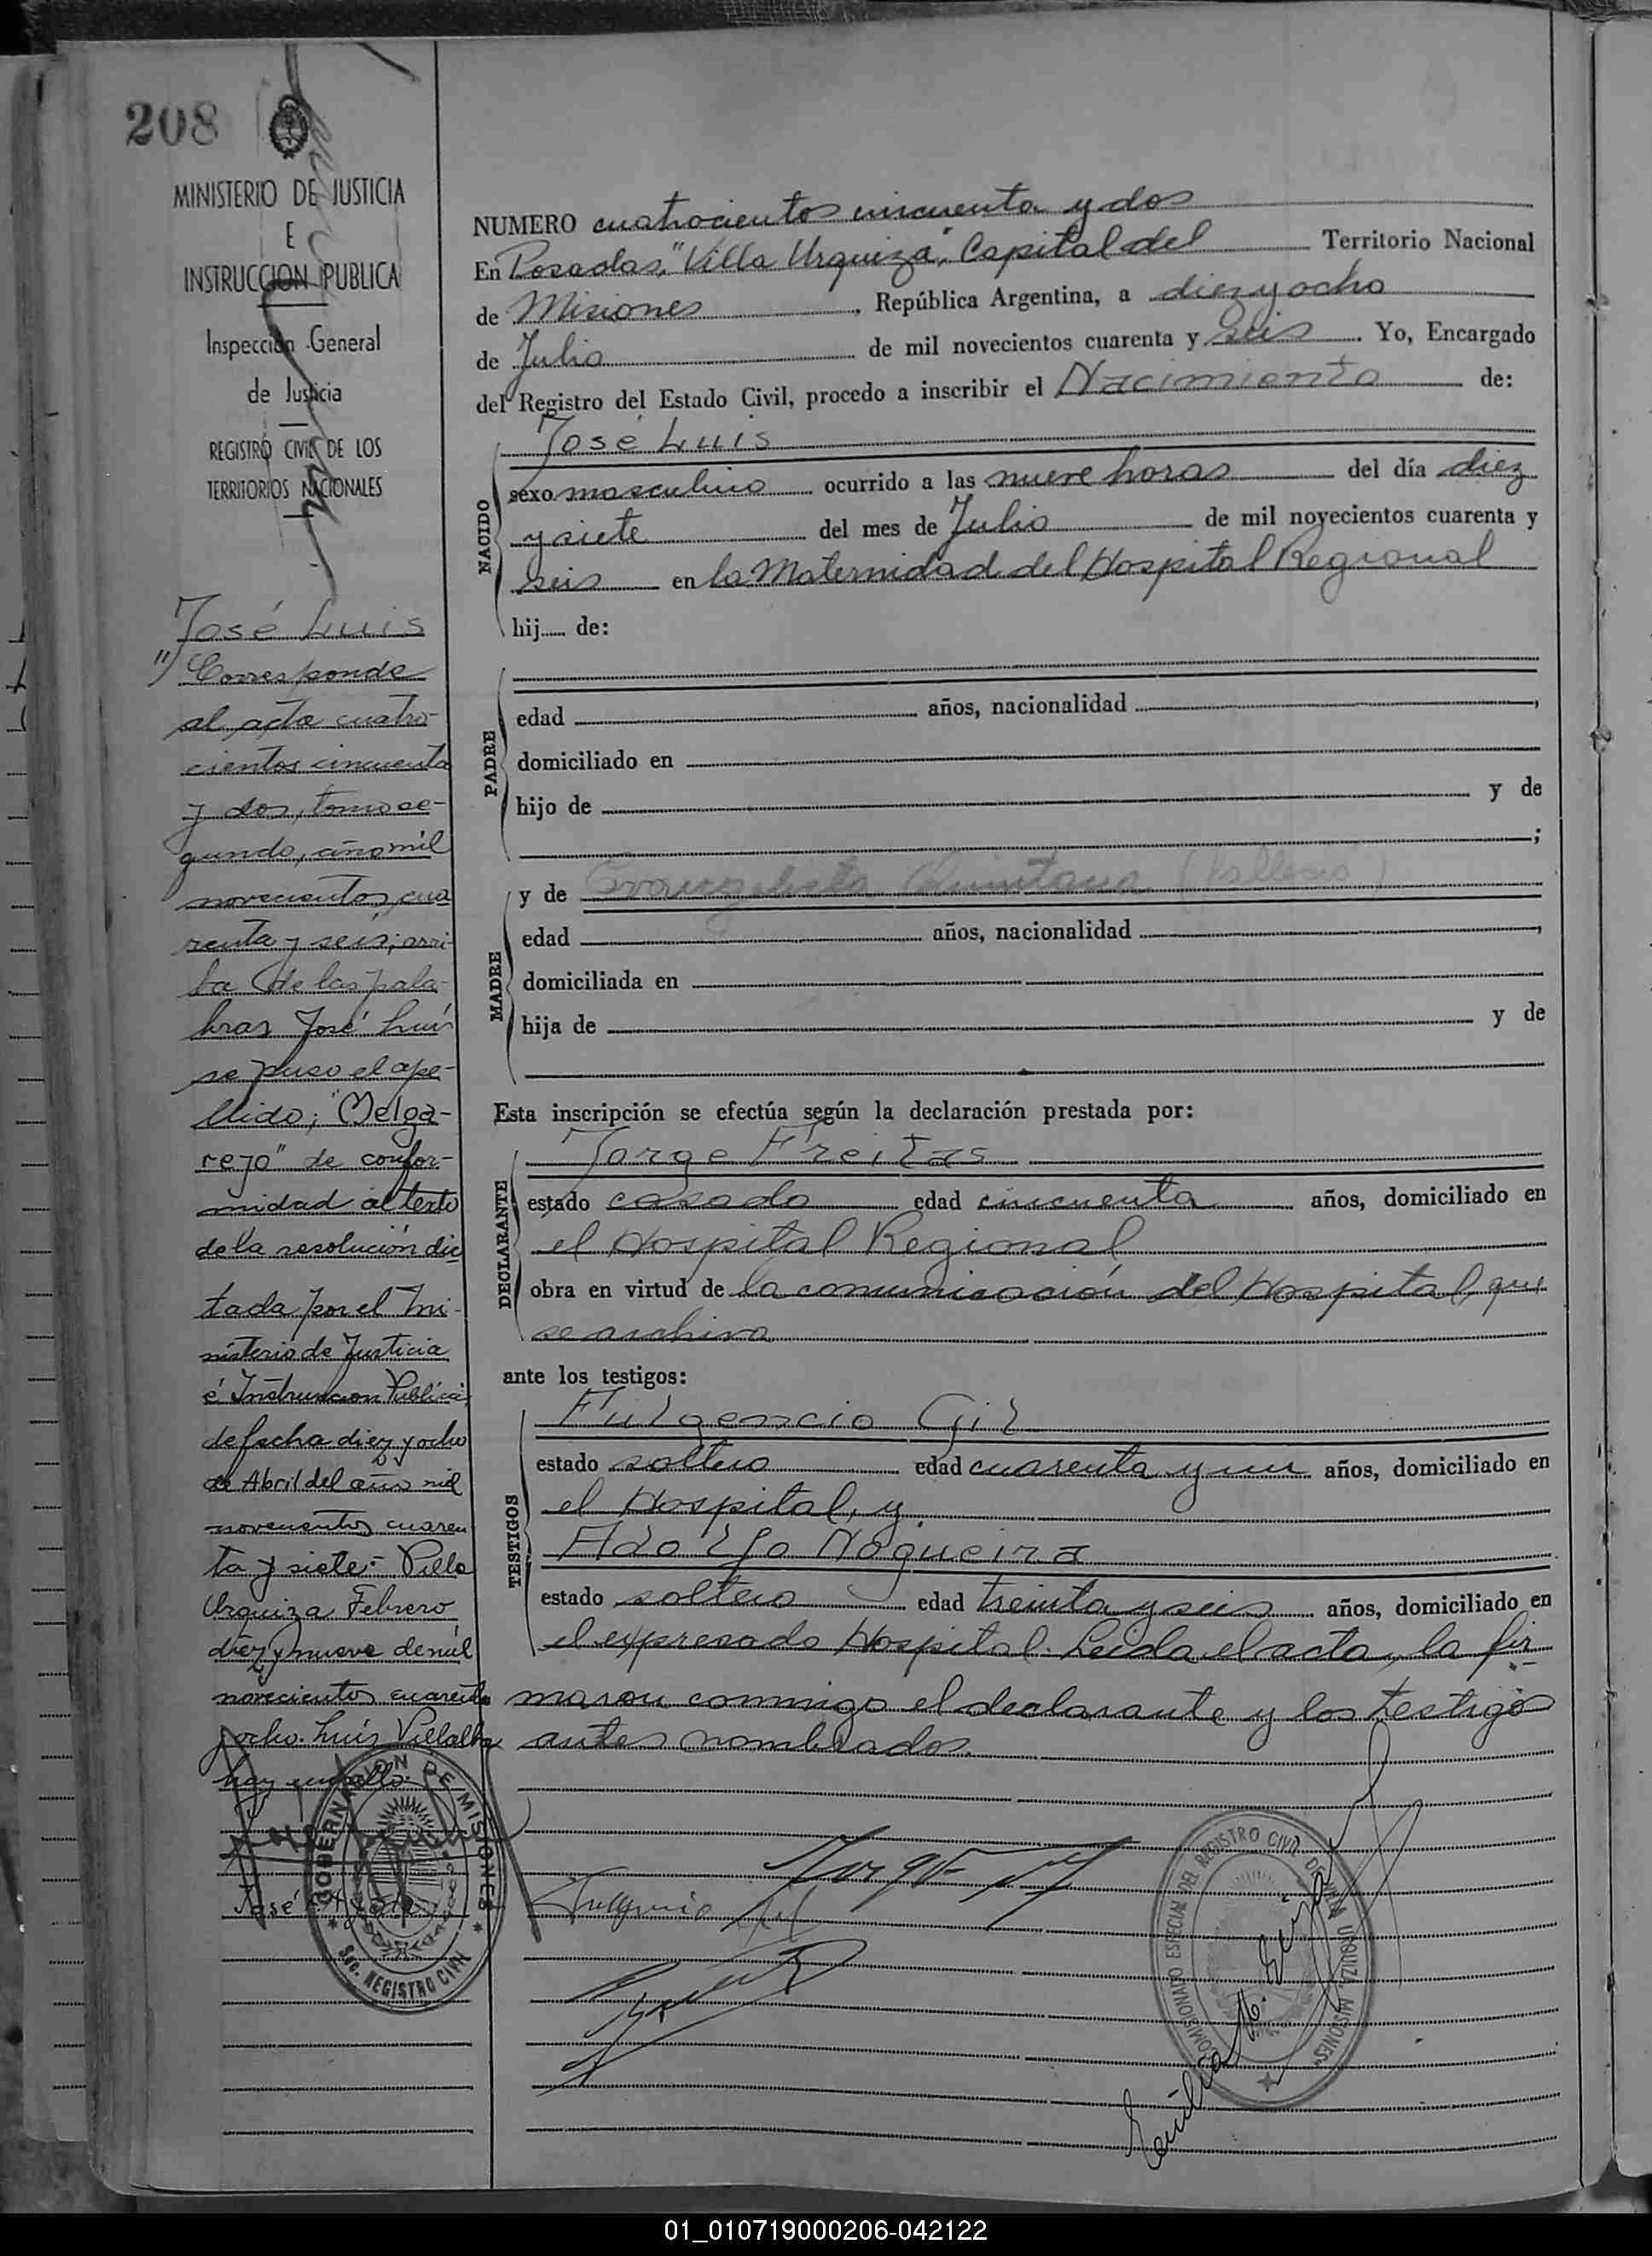 208
MINISTERIO DE JUSTICIA
E
INSTRUCCION PUBLICA
Inspección General
de Justicia
REGISTRO CIVIL DE LOS
TERRITORIOS NACIONALES
José Luis
") Corresponde
al acta cuatro-
cientos cincuenta
y dos, tomo se-
gundo, año mil
novecientos, cua
renta y seis; arri-
ba de las pala-
bras José Luis
se puso el ape-
llido; "Melga-
rejo" de confor-
midad al texto
de la resolución dic
tada por el Mi-
nisterio de Justicia
é Instruccion Publica
de fecha diez y ocho
de Abril del año mil
novecientos cuaren
ta y siete.- Villa
Urquiza Febrero
diez y nueve de mil
novecientos cuarenta
y ocho. Luis Villalba
hay un sello.
José
GOBERNACION DE MISIONES
Sec. REGISTRO CIVIL
NUMERO cuatrocientos cincuenta y dos
En Posadas, "Villa Urquiza", Capital del Territorio Nacional
de Misiones, República Argentina, a diez y ocho
de Julio de mil novecientos cuarenta y seis. Yo, Encargado
del Registro del Estado Civil, procedo a inscribir el Nacimiento de:
NACIDO
José Luis
sexo masculino ocurrido a las nueve horas del día diez
y siete del mes de Julio de mil novecientos cuarenta y
seis en la Maternidad del Hospital Regional
hij de:
PADRE
edad años, nacionalidad ,
domiciliado en
hijo de y de
;
MADRE
y de Evangelista Quintana (Falleció)
edad años, nacionalidad ,
domiciliada en
hija de y de
Esta inscripción se efectúa según la declaración prestada por:
DECLARANTE
Jorge Freitas
estado casado edad cincuenta años, domiciliado en
el Hospital Regional
obra en virtud de la comunicación del Hospital, que
se archiva
ante los testigos:
TESTIGOS
Fulgencio Gil
estado soltero edad cuarenta y un años, domiciliado en
el Hospital, y
Adolfo Nogueira
estado soltero edad treinta y seis años, domiciliado en
el expresado Hospital. Leida el acta, la fir-
maron conmigo el declarante y los testigos
antes nombrados.
Fulgencio Gil
COMISIONADO ESPECIAL DEL REGISTRO CIVIL DE VILLA URQUIZA MISIONES
01_010719000206-042122